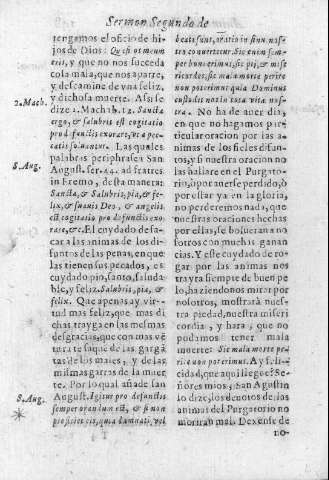 Sermon Segundo de
tengamos el oficio de hi-
jos de Dios: Quasi os meum
eris, y que no nos suceda
cosa mala, que nos aparte,
y descamine de vna feliz,
y dichosa muerte. Assi se
2. Mach.
dize 1. Machab. 12. Sancta
ergo, & salubris est cogitatio
pro defunctis exorare, vt a pec-
catis soluantur. Las quales
S. Aug.
palabras periphrasea San
August. ser. 44. ad fratres
in Eremo, desta manera:
Sancta, & Salubris, pia, & fe-
lix, & suauis Deo, & angelis
est cogitatio pro defunctis exo-
rare, &c. El cuydado de sa-
car a las animas de los di-
funtos de las penas, en que
las tienen sus pecados, es
cuydado pio, santo, saluda-
ble, y feliz. Salubris, pia, &
felix. Que apenas ay vir-
tud mas feliz, que mas di-
chas trayga en las mesmas
desgracias, que con mas vẽ
tura te saque de las gargã
tas de los males, y de las
mismas garras de la muer
te. Por lo qual añade san
S. Aug.
August. Igitur pro defunctis
semper orandum est, & si non
proficit eis, quia damnati, vel
beati sunt, oratio in sinu nos-
tro conuertetur. Sic enim sem-
per boni erimus, sic pij, & mi-
sericordes, sic mala morte perire
non poterimus quia Dominus
custodit nos in tota vita nos-
tra. No ha de auer dia,
en que no hagamos par-
ticular oracion por las a-
nimas de los fieles difun-
tos, y si nuestra oracion no
las hallare en el Purgato-
rio, ò por auerse perdido, ò
por estar ya en la gloria,
no perderemos nada, que
nuestras oraciones hechas
por ellas, se bolueran a no
sotros con muchas ganan
cias. Y este cuydado de ro-
gar por las animas nos
trayra siempre de buen pe
lo, haziendonos mirar por
nosotros, mostrarà nues-
tra piedad, nuestra miseri
cordia, y hara, que no
podamos tener mala
muerte: Sic mala morte pe-
rire non poterimus. Ay feli-
cidad, que aqui llegue? Se-
ñores mios, San Agustin
lo dize, los deuotos de las
animas del Purgatorio no
moriran mal. Dexense de
no-